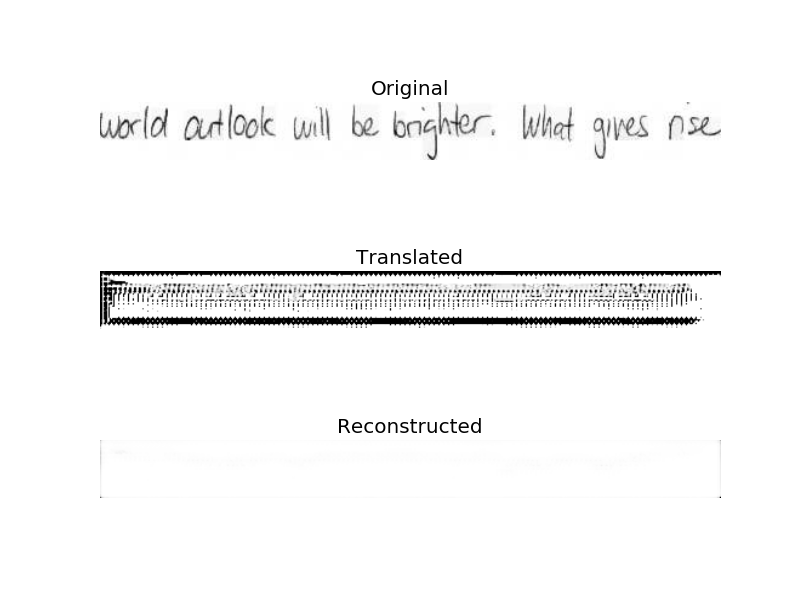 Original
world outlook will be brighter. What gives rise
Translated
Reconstructed